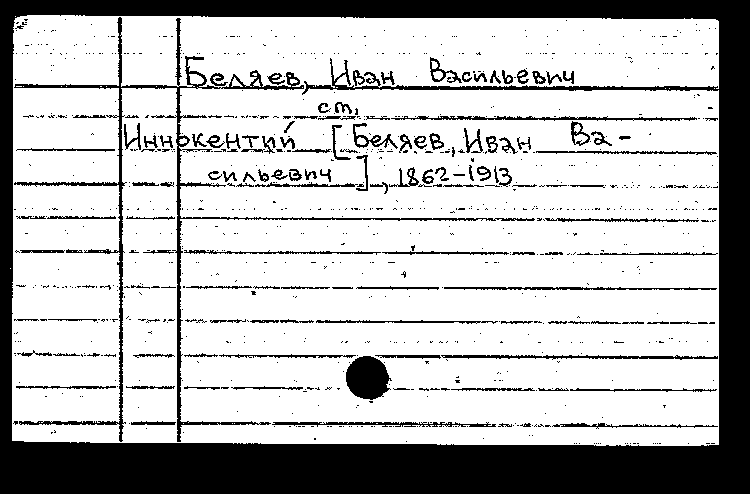 Беляев, Иван Васильевич
ст.
Иннокентий [Беляев, Иван Ва-
сильевич], 1862-1913